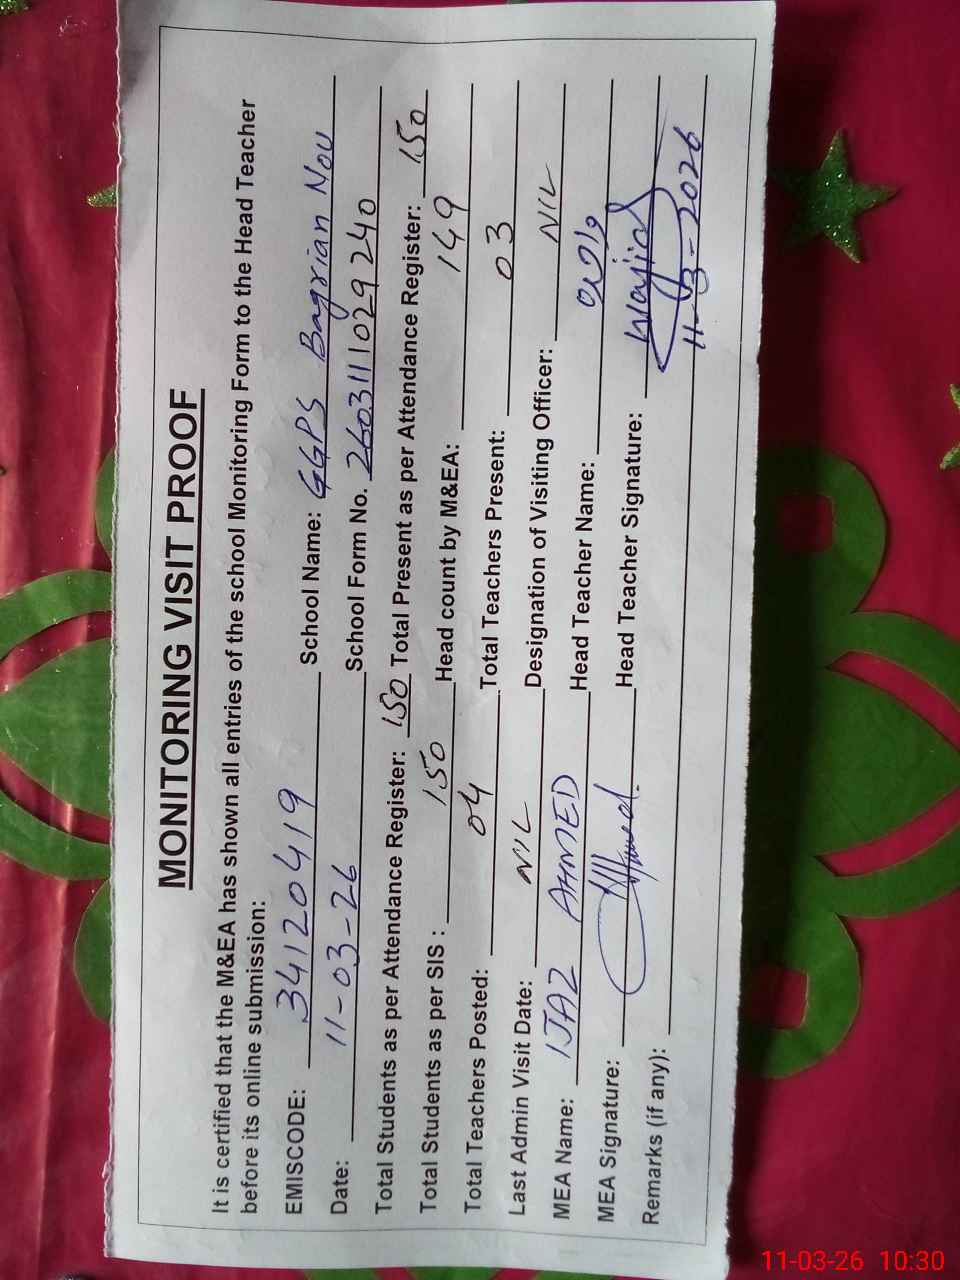 MONITORING VISIT PROOF
It is certified that the M&EA has shown all entries of the school Monitoring Form to the Head Teacher
before its online submission:
EMISCODE: 34120419 School Name: GGPS Bagrian Nou
Date: 11-03-26 School Form No. 2603111029240
Total Students as per Attendance Register: 150 Total Present as per Attendance Register: 150
Total Students as per SIS : 150 Head count by M&EA: 149
Total Teachers Posted: 04 Total Teachers Present: 03
Last Admin Visit Date: NIL Designation of Visiting Officer: NIL
MEA Name: IJAZ AHMED Head Teacher Name:
MEA Signature: Ahmed Head Teacher Signature:
Remarks (if any): 11-03-2026
11-03-26 10:30